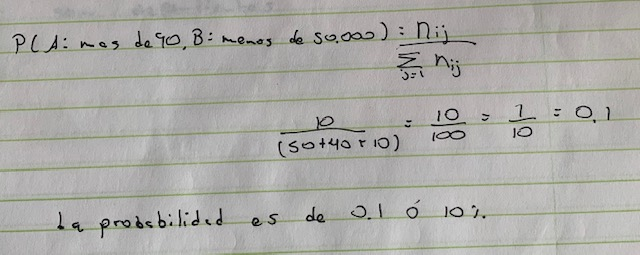 P(A: mas de 90, B: menos de 50.000) = nij
∑ nij
j=1
10 = 10 = 1 = 0.1
(50+40+10) 100 10
La probabilidad es de 0.1 ó 10%.